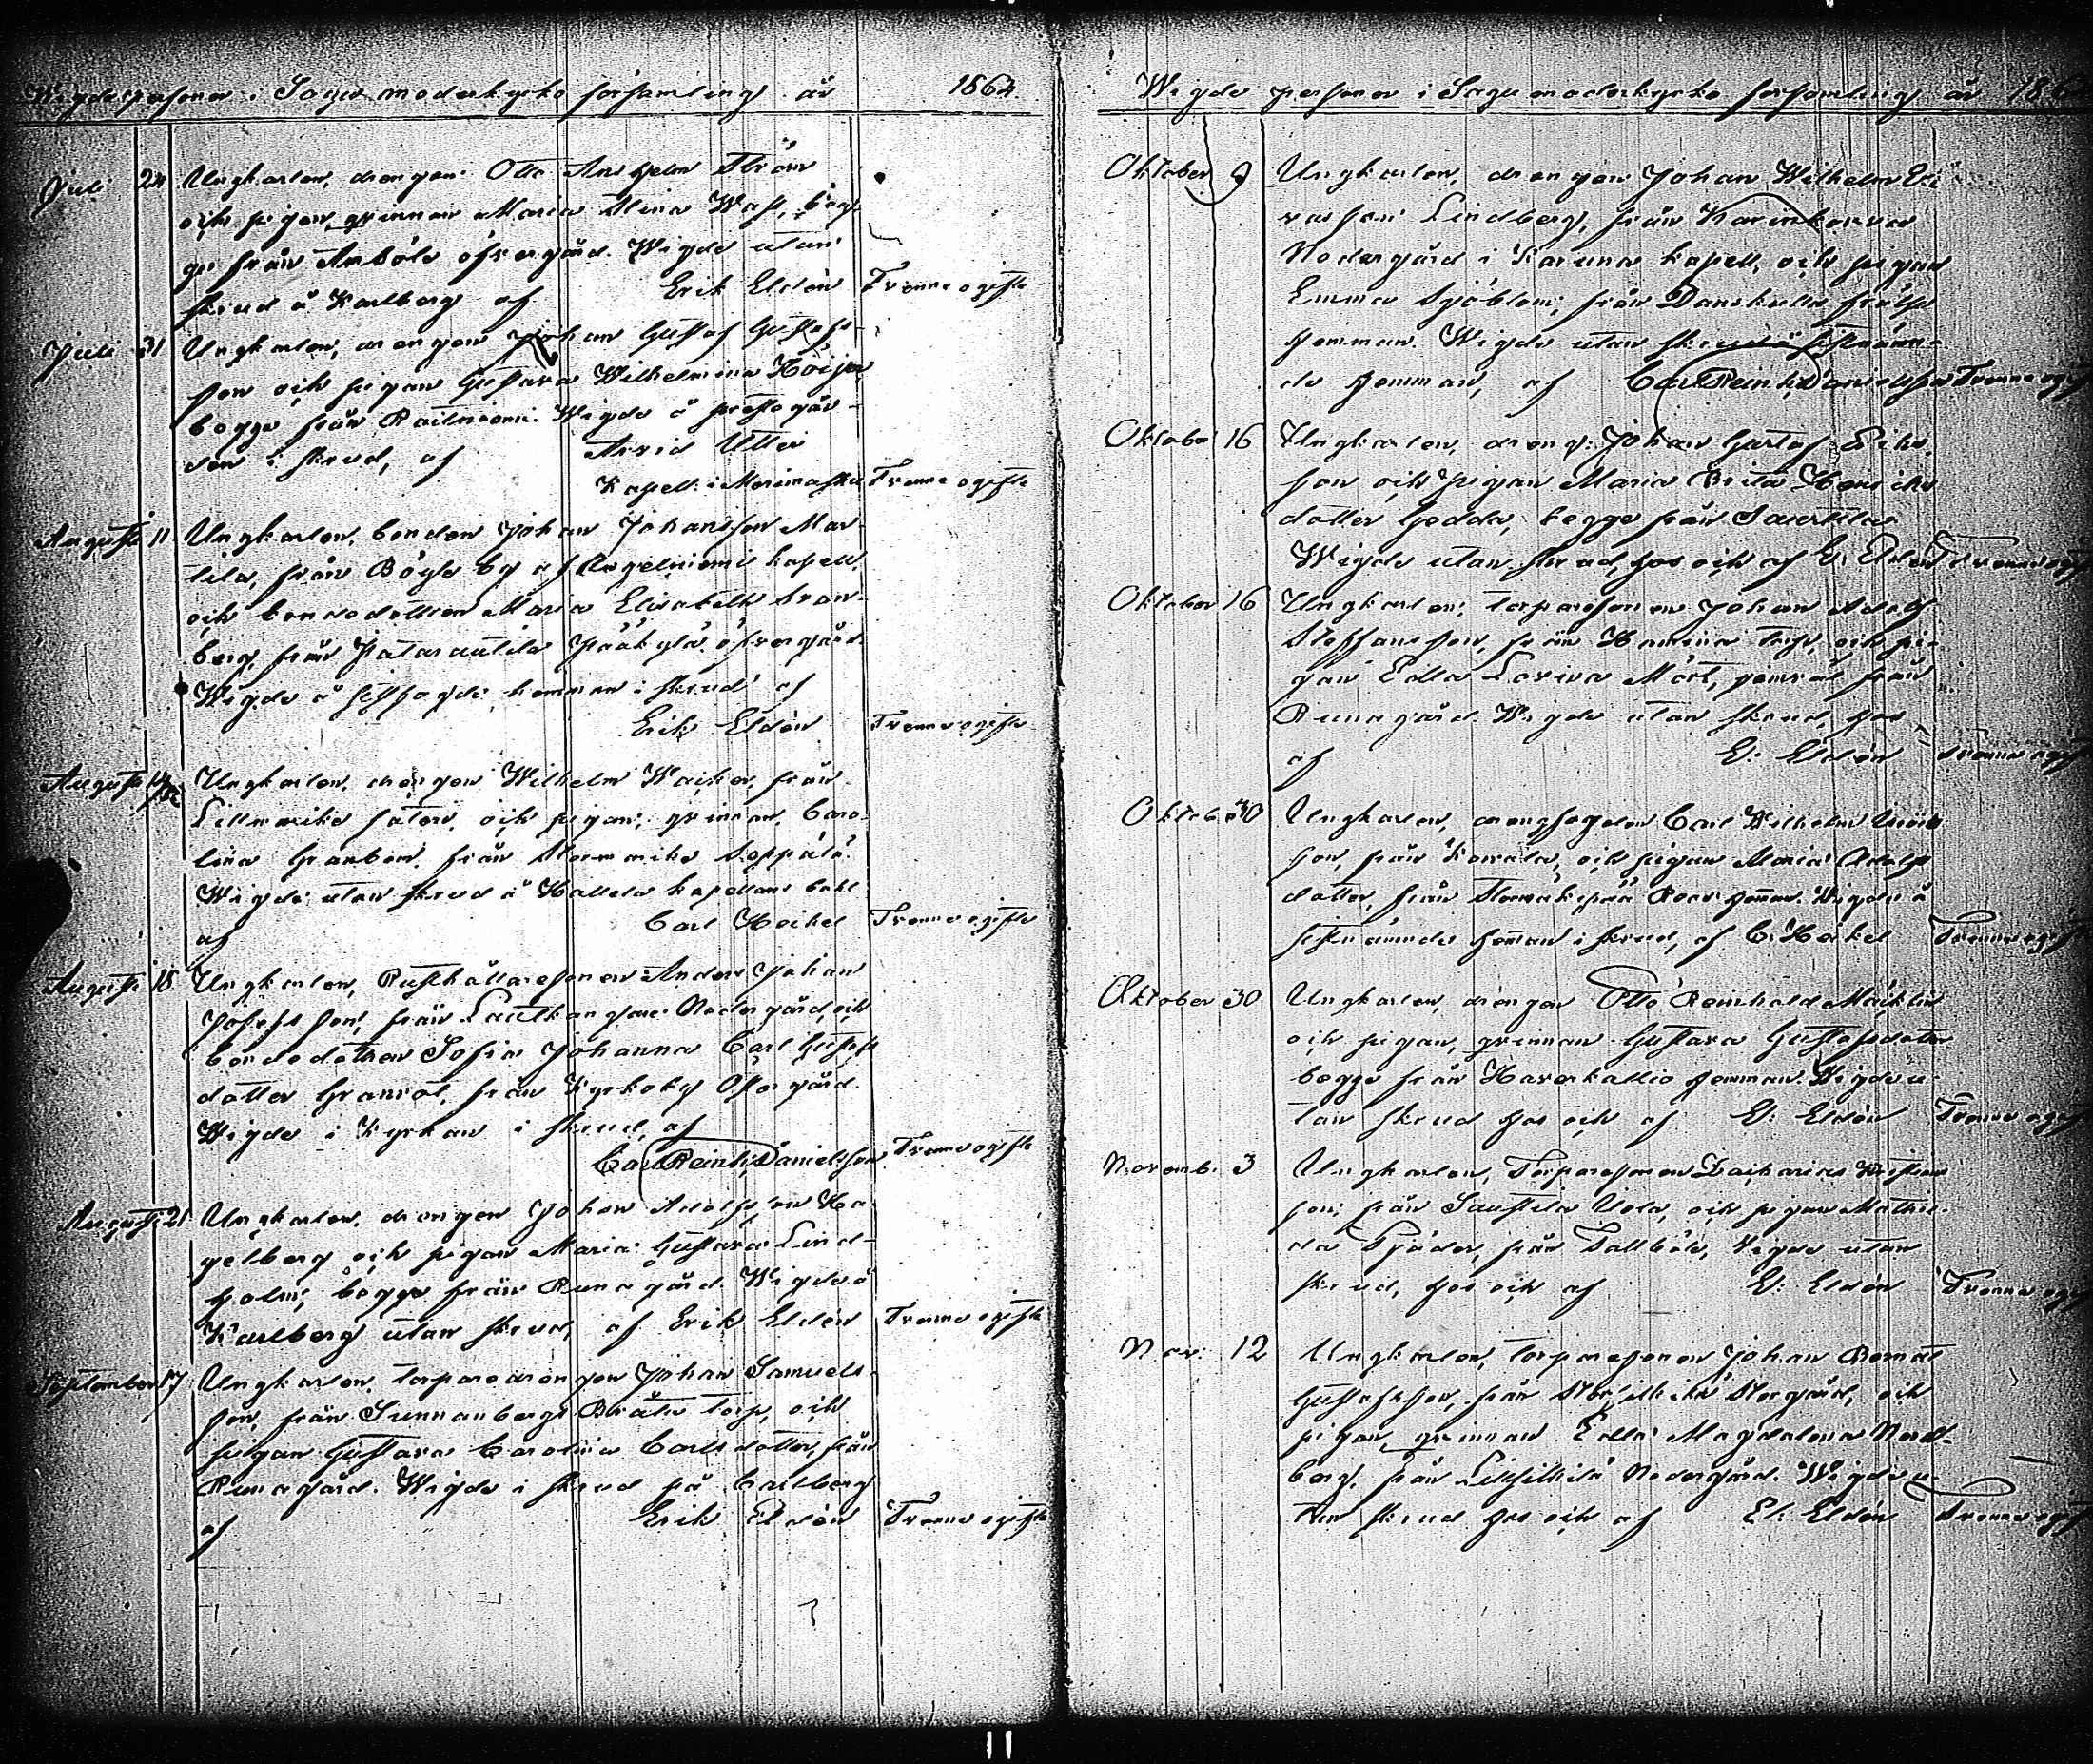 Wigde personer i Sagu moderkyrko församling år 1864.
Juli 24 Ungkarlen, drengen Otto Anshelm Ström
och pigan, qvinnan Maria Stina Wass, beg-
ge från Ambōle öfvergård. Wigde utan
skrud å Karlberg af Erik Eldén Trenne ogifte
Juli 31 Ungkarlen, drengen Johan Gustaf Gustafs-
son och pigan Gustava Wilhelmina Höijer
begge från Raitniemi. Wigde å prestegår-
den i skrud, af Arvid Utter
Kapell. i Merimasku Trenne ogifte
Augusti 11 Ungkarlen, bonden Johan Johansson Mar-
tila, från Böyle by af Angelniemi kapell,
och bondedottren Maria Elisabeth Gran-
berg, från öfvergård.
Wigde å sistsagde hemman i skrud af
Erik Eldén Trenne ogifte
Augusti Ungkarlen, drengen Wilhelm Wacker, från
Lillmarike säteri, och pigan, qvinnan, Caro-
lina Granbom, från Stormarike Seppälä.
Wigde utan skrud å Hallela kapellans bohl
af Carl Heikel Trenne ogifte
Augusti 18 Ungkarlen, Rusthållaresonen Anders Johan
Josefsson, från Lautkangare Nedergård, och
bondedottren Sofia Johanna Carl Gustafs
dotter Granrot, från Kyrkoby Ofvergård.
Wigde i Kyrkan i skrud, af
Carl Reinh. Danielsson Trenne ogifte
Augusti 21 Ungkarlen, drengen Johan Adolfsson Ha-
gelberg och pigan Maria Gustava Lind-
holm, begge från Runagård. Wigde å
Karlberg utan skrud, af Erik Eldén Trenne ogifte
September 17 Ungkarlen, torparedrengen Johan Samuels-
son, från Sunnanbergs Bråten torp, och
pigan Gustava Carolina Carlsdotter, från
Runagård. Wigde i skrud på Carlberg
af Erik Eldén Trenne ogifte
Wigde personer i Sagu moderkyrko församling år 186
Oktober 9 Ungkarlen, drengen Johan Wilhelm Eri-
vasson Lindberg, från Karinkorva
Nedergård i Karuna kapell, och pigan
Emma Sjöblom, från Danskulla frälse
hemman. Wigde utan skrud å sistnämn-
de hemman, af Carl Reinh. Danielsson Trenne ogif
Oktober 16 Ungkarlen, dreng. Johan Gustaf Eriks-
son och pigan Maria Brita Henriks
dotter Gedda, begge från Sauertila.
Wigde utan skrud, hos och af E. Eldén Trenne ogif
Oktober 16 Ungkarlen, torparesonen Johan Adolf
Steffansson, från Hamina torp, och pi-
gan Edla Lovisa Mört, från
Runagård. Wigde utan skrud, hos
af E. Eldén Trenne ogif
Oktob. 30 Ungkarlen, drengfogden Carl Wilhelm
son, från Kovala, och pigan Maria Adolfs
dotter, från hemman. Wigde å
sistnämnde heman i skrud, af C. Heikel Trenne ogif
Oktober 30 Ungkarlen, drengen Otto Reinhold Mäcklin
och pigan, qvinnan Gustava Gustafsdotter
begge från Haverkallio hemman. Wigde u-
tan skrud hos och af E. Eldén Trenne ogif
Novemb. 3 Ungkarlen, Torparesonen Zacharias Kristians
son, från Saustila Uola, och pigan Mathil-
da Sjöder, från Sallböle, Wigde utan
skrud, hos och af E. Eldén Trenne ogif
Nov. 12 Ungkarlen, torparesonen Johan Bernat
Gustafsson, från Storgård, och
pigan, qvinnan Edla Magdalena Nord-
berg, från Nedergård. Wigde u-
tan skrud hos och af E. Eldén Trenne ogif